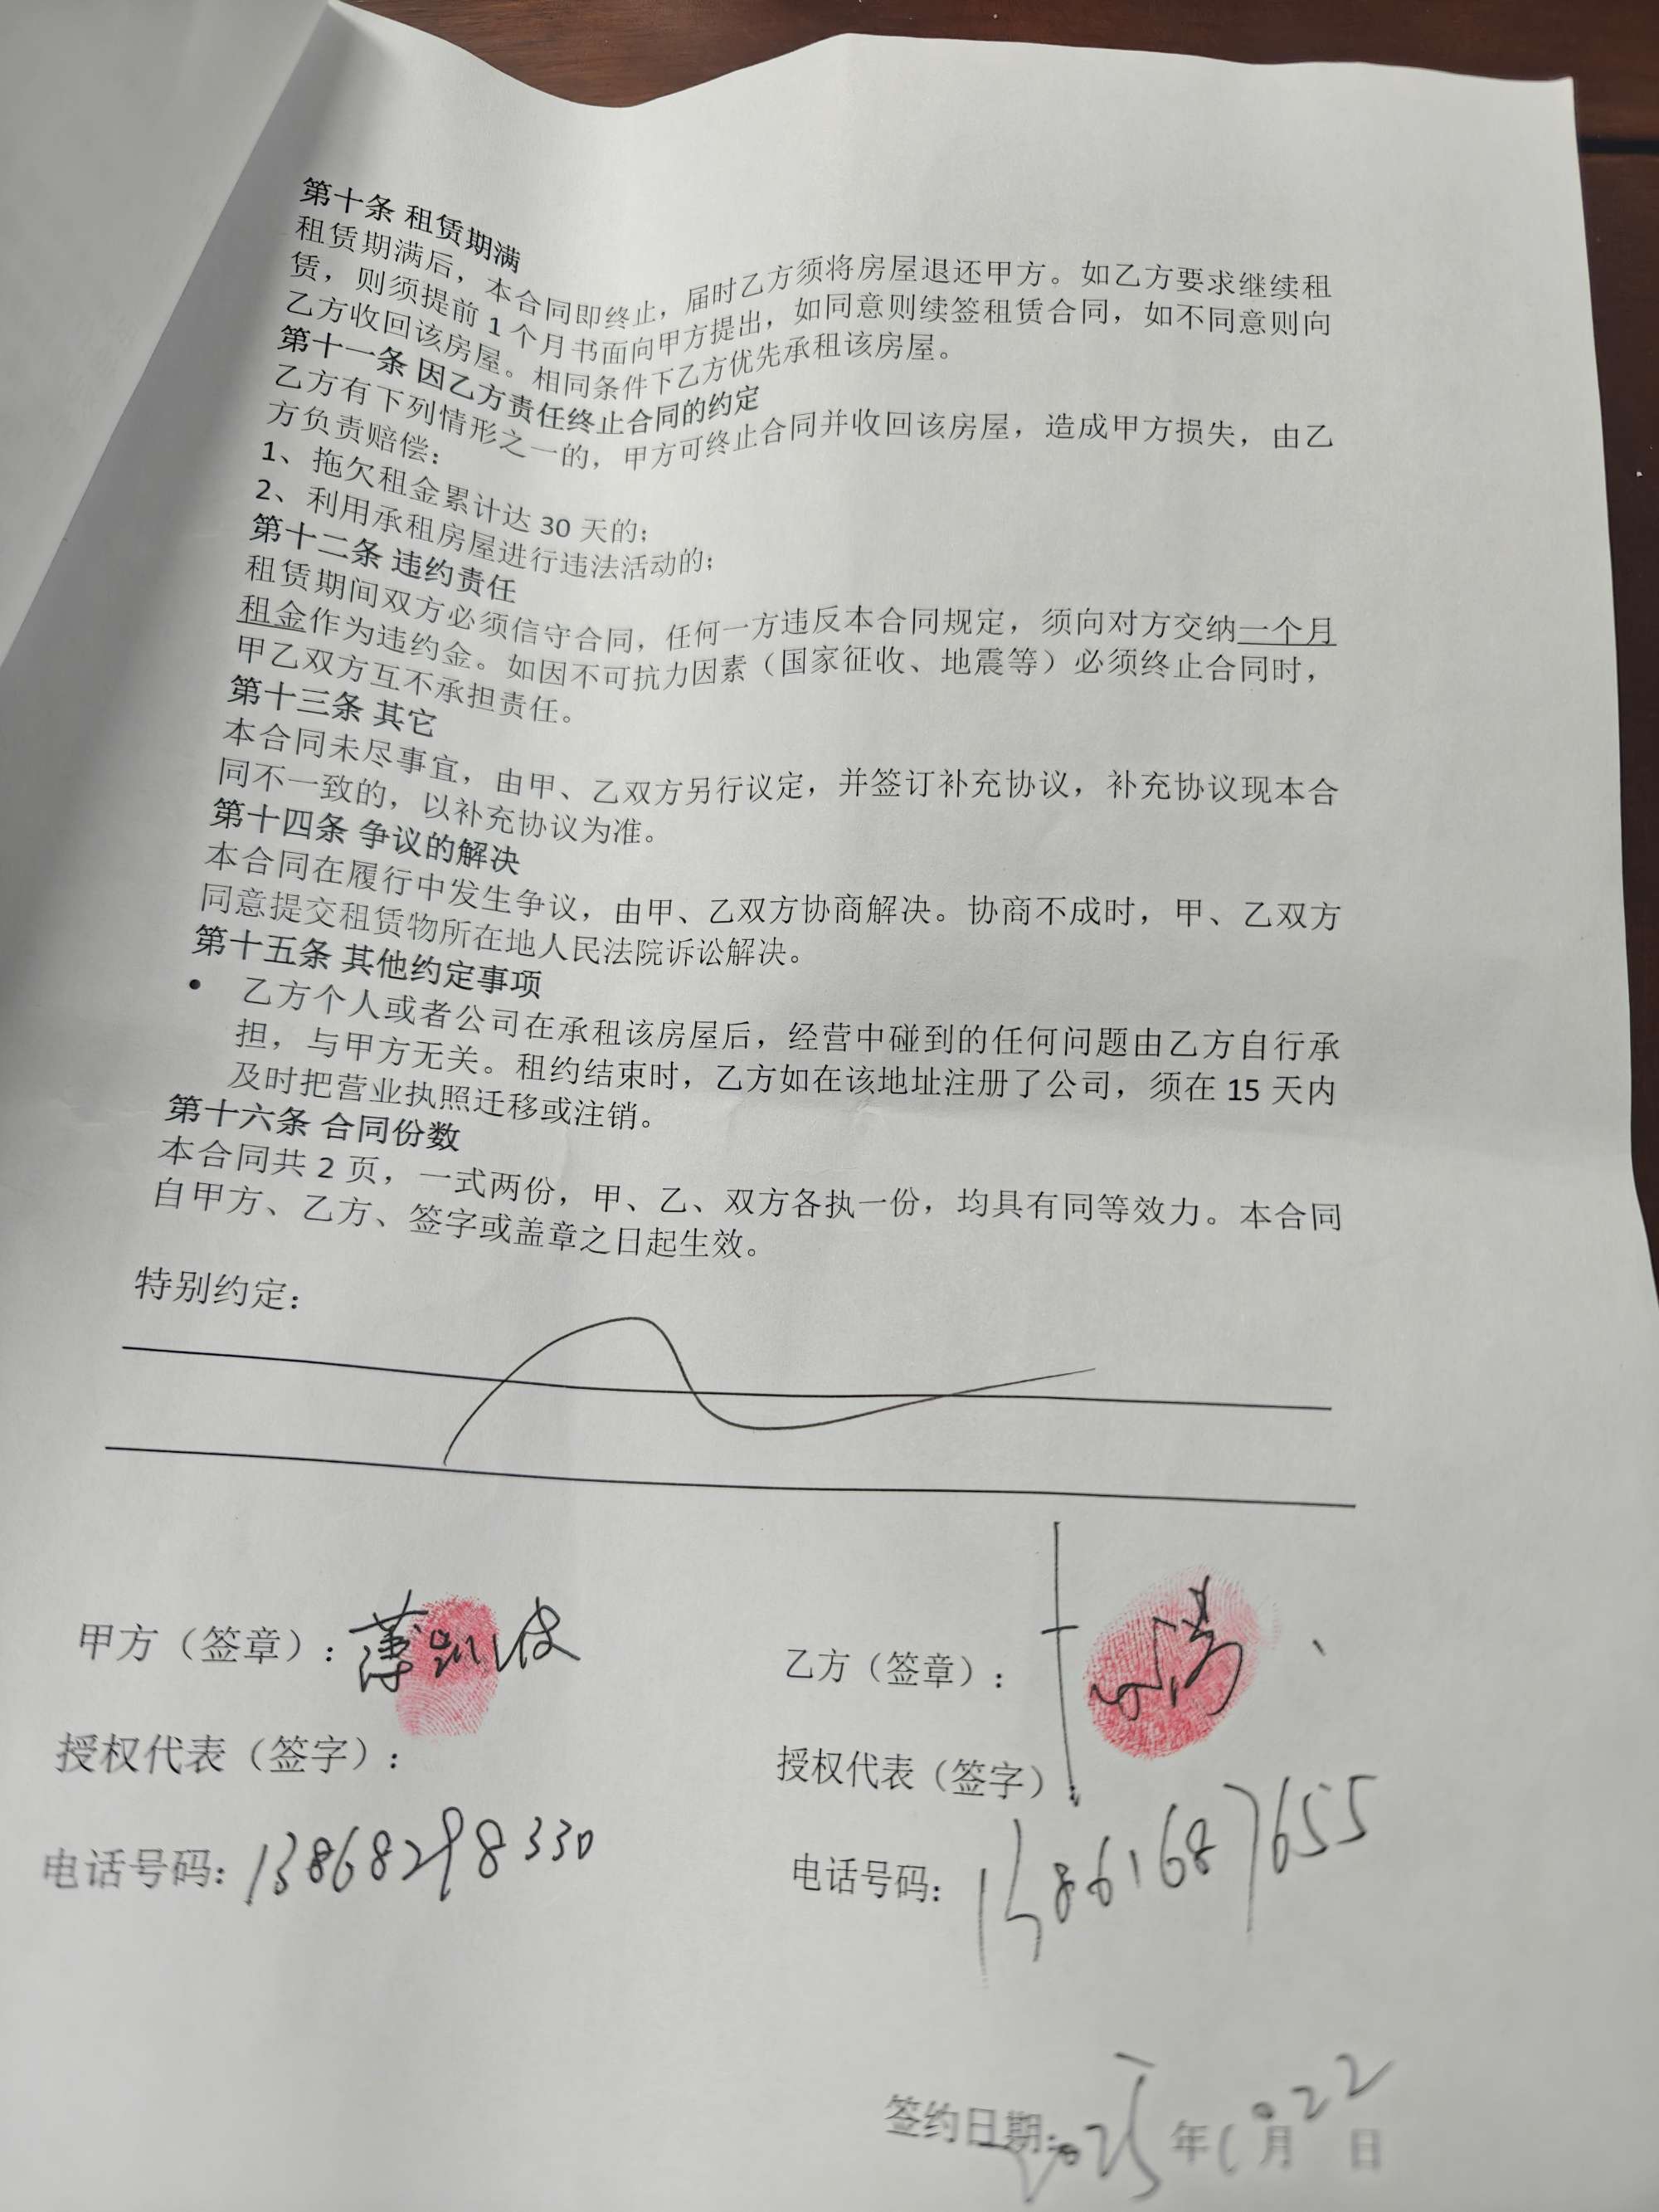 第十条 租赁期满
租赁期满后，本合同即终止，届时乙方须将房屋退还甲方。如乙方要求继续租
赁，则须提前 1 个月书面向甲方提出，如同意则续签租赁合同，如不同意则向
乙方收回该房屋。相同条件下乙方优先承租该房屋。
第十一条 因乙方责任终止合同的约定
乙方有下列情形之一的，甲方可终止合同并收回该房屋，造成甲方损失，由乙
方负责赔偿：
1、拖欠租金累计达 30 天的；
2、利用承租房屋进行违法活动的；
第十二条 违约责任
租赁期间双方必须信守合同，任何一方违反本合同规定，须向对方交纳一个月
租金作为违约金。如因不可抗力因素（国家征收、地震等）必须终止合同时，
甲乙双方互不承担责任。
第十三条 其它
本合同未尽事宜，由甲、乙双方另行议定，并签订补充协议，补充协议现本合
同不一致的，以补充协议为准。
第十四条 争议的解决
本合同在履行中发生争议，由甲、乙双方协商解决。协商不成时，甲、乙双方
同意提交租赁物所在地人民法院诉讼解决。
第十五条 其他约定事项
• 乙方个人或者公司在承租该房屋后，经营中碰到的任何问题由乙方自行承
担，与甲方无关。租约结束时，乙方如在该地址注册了公司，须在 15 天内
及时把营业执照迁移或注销。
第十六条 合同份数
本合同共 2 页，一式两份，甲、乙、双方各执一份，均具有同等效力。本合同
自甲方、乙方、签字或盖章之日起生效。
特别约定：
甲方（签章）：薄凯俊
乙方（签章）：
授权代表（签字）：
授权代表（签字）
电话号码：13868298330
电话号码：15861687655
签约日期：2025年10月22日